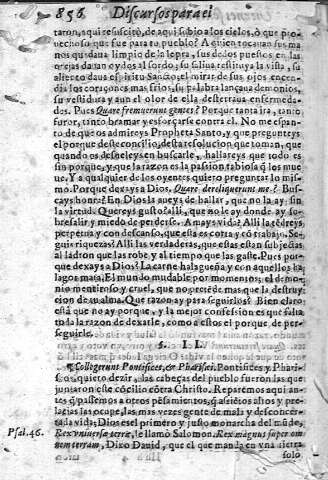 856 Discursos para el
taron, aqui resuscitó, de aqui subio a los cielos, ò que pro-
uechoso que fue para tu pueblo? A quien tocauan sus ma
nos quedaua limpio de la lepra, sus dedos puestos en las
orejas dauan oydos al sordo; su saliua restituya la vista, su
aliento daua espiritu Sancto; el mirar de sus ojos encen-
dia los coraçones mas frios, su palabra lançaua demonios,
su vestidura y aun el olor de ella desterraua enfermeda-
des. Pues Quare fremuerunt gentes? Porque tanta ira, tanto
furor, tanto bramar y esforçarse contra el. No me espan-
to de que os admireys Propheta Santo, y que pregunteys
el porque deste concilio, desta resolucion que toman, que
quando os desueleys en buscarle, hallareys que todo es
sin porque, y que la razon es la passion rabiosa q̃ los mue
ue. Y a qualquier de los oyentes quiero preguntar lo mis
mo. Porque dexays a Dios, Quare dereliquerunt me? Bus-
cays honra? En Dios la aueys de hallar, que no la ay sin
la virtud. Quereys gusto? alli, que no le ay donde ay so-
bresalto y miedo de perderse. Amays vida? Alli la tẽdreys
perpetua y con descanso, que esta es corta y cõ trabajo. Se-
guis riquezas? Alli las verdaderas, que estas estan subjectas
al ladron que las robe, y al tiempo que las gaste. Pues por-
que dexays a Dios? La carne halagueña y con aquellos ha
lagos mata. El mundo mudable por momentos, el demo-
nio mentiroso y cruel, que no pretẽde mas que la destruy
cion de su alma. Que razon ay para seguirlos? Bien claro
està que no ay porque, y la mejor confesion es que falta
toda la razon de dexarle, como a estos el porque de per-
seguirle.
§. II.
Collegerunt Pontifices, & Pharisei. Pontifices y Phari-
seos, quiero dezir, las cabeças del pueblo fueron las que
juntaron este cõcilio cõtra Christo. Reparemos aqui an-
tes q̃ passemos a otros pẽsamientos, q̃ a sietos altos y pre-
lacias los ocupe, las mas vezes gente de mala y desconcer-
tada vida; Dios es el primero y justo monarcha del mũdo,
Psal. 46. Rex vniuersæ terræ, le llamò Salomon. Rex magnus super om
nem terram, Dixo Dauid, que el que manda en vna tierra
solo